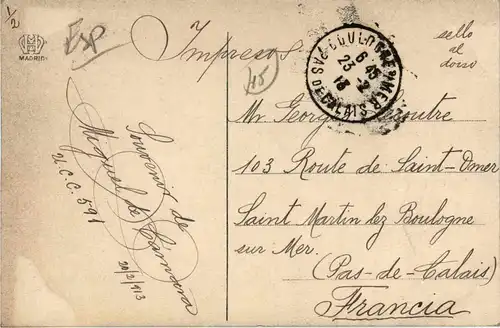 1/2
ESP
MADRID
Impresos
sello
al
dorso
45
BOULOGNE S MER
6 45
23 - 2
13
PAS DE CALAIS
Mr Georges Lecoutre
103 Route de Saint-Omer
Saint Martin lez Boulogne
sur Mer.
(Pas-de-Calais)
Francia
Souvenir de
Miguel de
U.C.C. 591
20/2/913